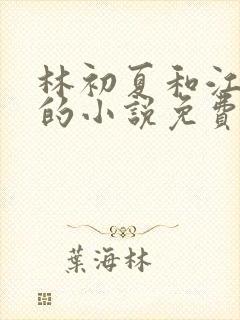 林初夏和江
的小說免費
葉海林